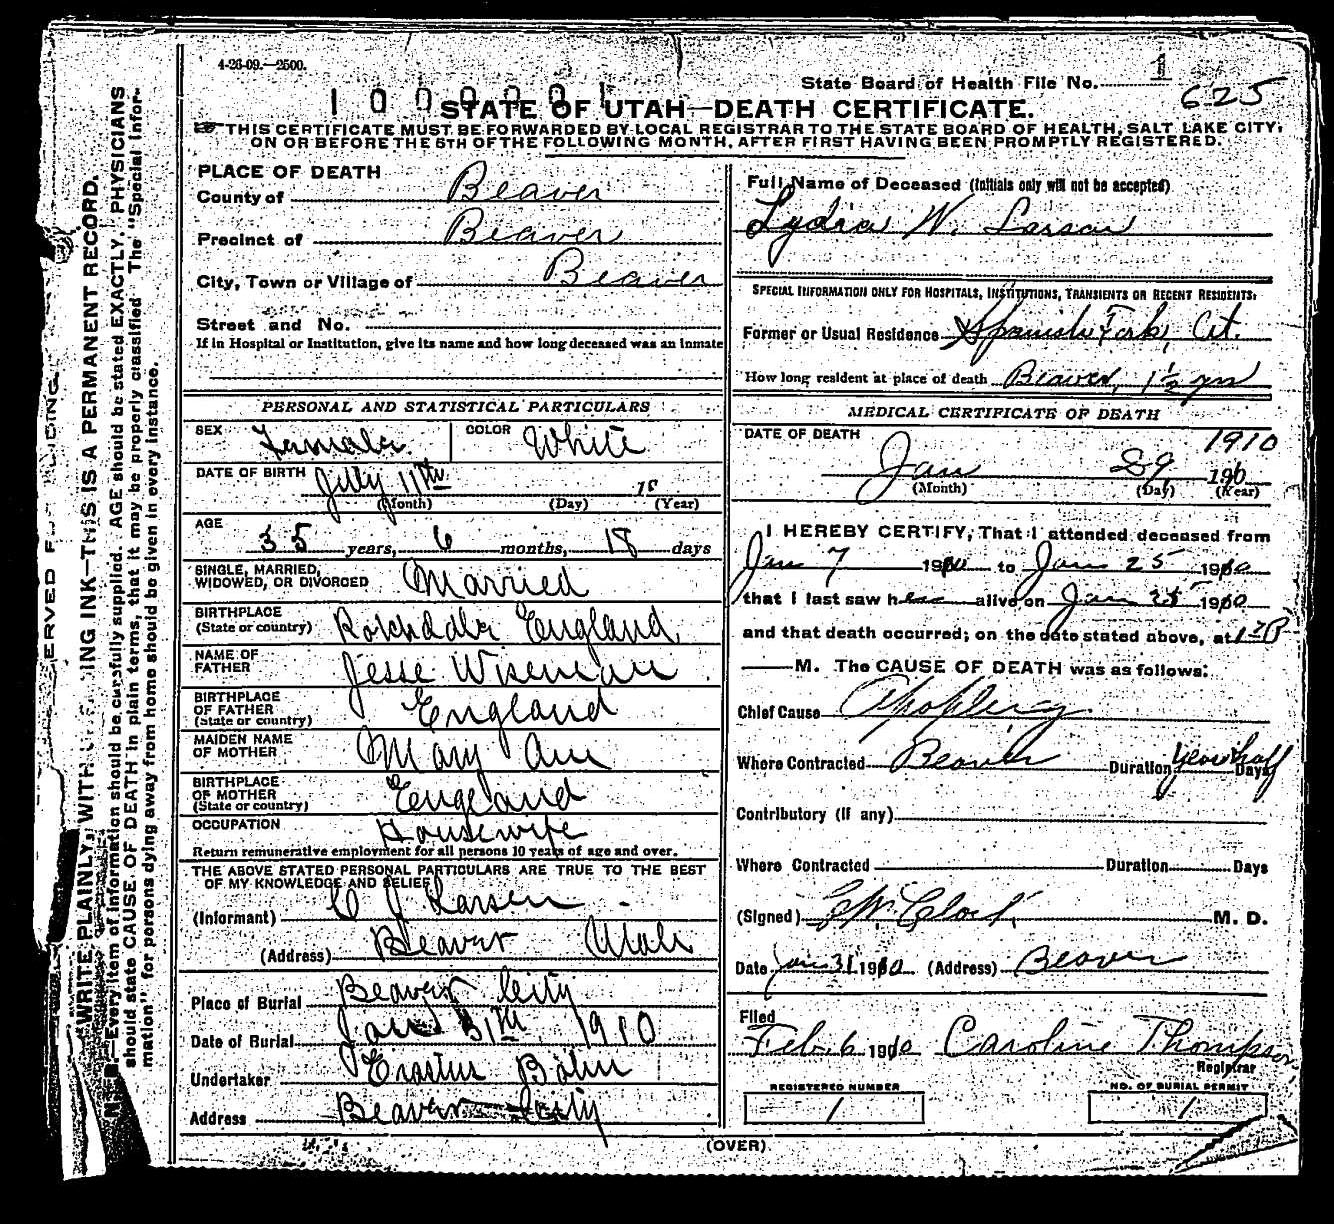 4-26-09.—2500.
State Board of Health File No. 1
1 0 0 0 0 0 1
625
STATE OF UTAH—DEATH CERTIFICATE.
THIS CERTIFICATE MUST BE FORWARDED BY LOCAL REGISTRAR TO THE STATE BOARD OF HEALTH, SALT LAKE CITY,
ON OR BEFORE THE 5TH OF THE FOLLOWING MONTH, AFTER FIRST HAVING BEEN PROMPTLY REGISTERED.
PLACE OF DEATH
County of Beaver
Precinct of Beaver
City, Town or Village of Beaver
Street and No.
If in Hospital or Institution, give its name and how long deceased was an inmate
PERSONAL AND STATISTICAL PARTICULARS
SEX Female COLOR White
DATE OF BIRTH July 11th 18
(Month) (Day) (Year)
AGE
35 years, 6 months, 18 days
SINGLE, MARRIED,
WIDOWED, OR DIVORCED Married
BIRTHPLACE
(State or country) Rochdale England
NAME OF
FATHER Jesse Wiseman
BIRTHPLACE
OF FATHER
(State or country) England
MAIDEN NAME
OF MOTHER Mary Ann
BIRTHPLACE
OF MOTHER
(State or country) England
OCCUPATION Housewife
Return remunerative employment for all persons 10 years of age and over.
THE ABOVE STATED PERSONAL PARTICULARS ARE TRUE TO THE BEST
OF MY KNOWLEDGE AND BELIEF
(Informant) C J Larsen
(Address) Beaver Utah
Place of Burial Beaver City
Date of Burial Jan 31th 1910
Undertaker Erastus Bohn
Address Beaver City
Full Name of Deceased (Initials only will not be accepted)
Lydia W. Larsen
SPECIAL INFORMATION ONLY FOR HOSPITALS, INSTITUTIONS, TRANSIENTS OR RECENT RESIDENTS.
Former or Usual Residence Spanish Fork, Ut.
How long resident at place of death Beaver, 1½ yrs
MEDICAL CERTIFICATE OF DEATH
DATE OF DEATH 1910
Jan 29 190
(Month) (Day) (Year)
I HEREBY CERTIFY, That I attended deceased from
Jan 7 1910 to Jan 25 1910
that I last saw her alive on Jan 25 1910
and that death occurred, on the date stated above, at
M. The CAUSE OF DEATH was as follows:
Chief Cause Apoplexy
Where Contracted Beaver Duration year half Days
Contributory (If any)
Where Contracted Duration Days
(Signed) M. D.
Date Jan 31 1910 (Address) Beaver
Filed
Feb. 6 1910 Caroline Thompson
Registrar
REGISTERED NUMBER
1
NO. OF BURIAL PERMIT
1
(OVER)
WRITE PLAINLY, WITH ING INK—THIS IS A PERMANENT RECORD.
N. B.—Every item of information should be carefully supplied. AGE should be stated EXACTLY. PHYSICIANS
should state CAUSE OF DEATH in plain terms, that it may be properly classified. The "Special Infor-
mation" for persons dying away from home should be given in every instance.